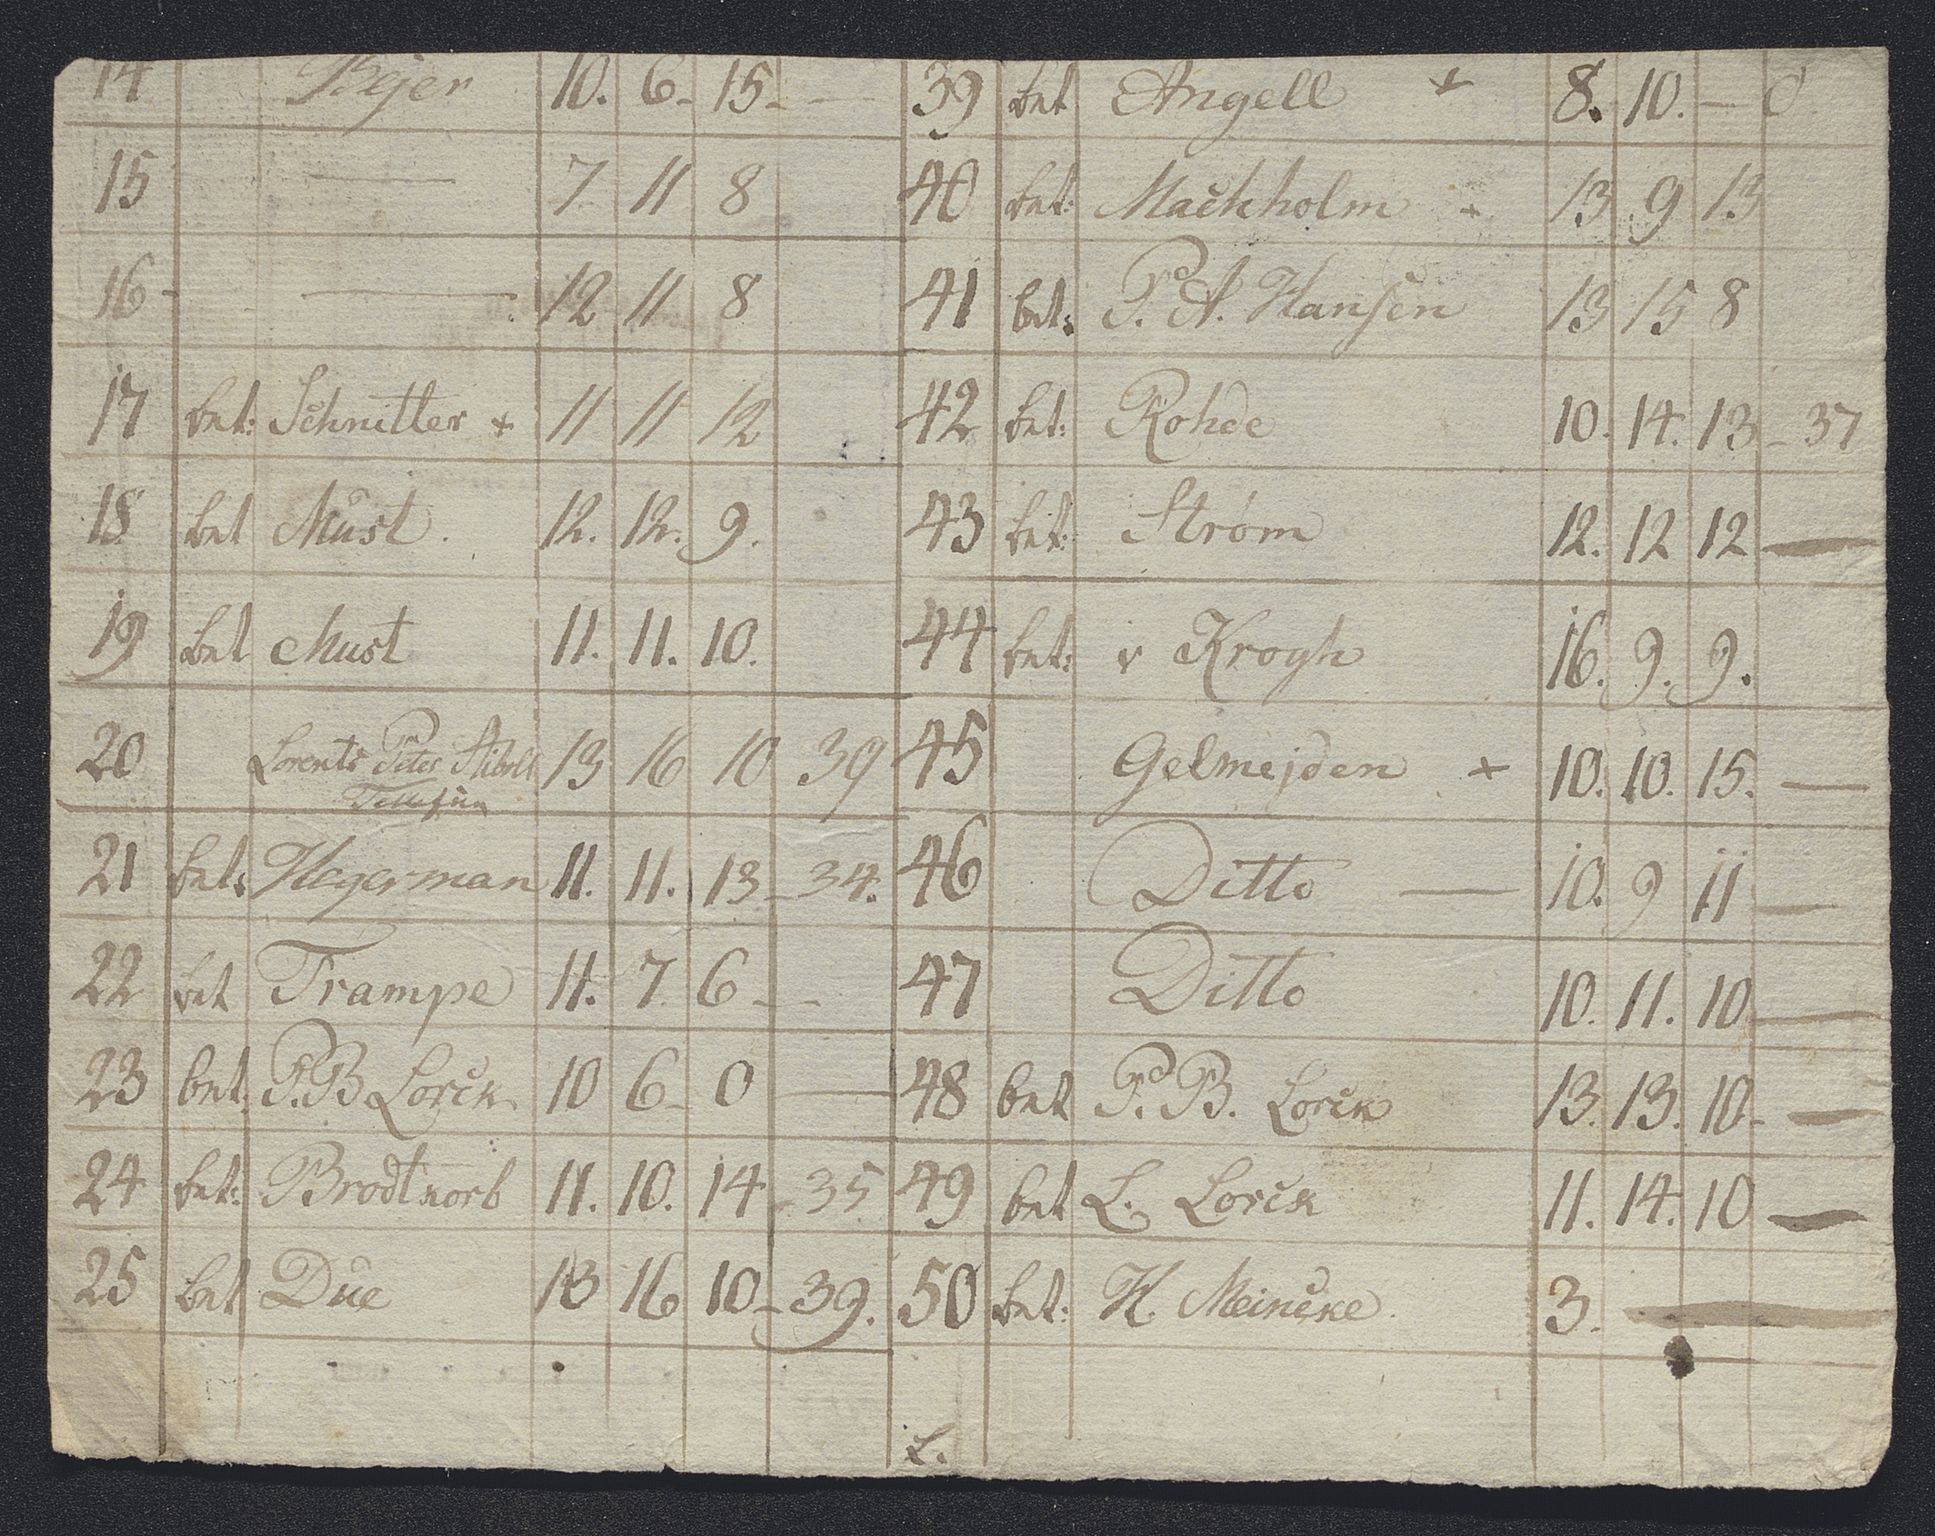 14 Bejer 10. 6 - 15 - —
15 — 7 11 8
16 - — 12 11 8
17 bet: Schnitler + 11 11 12
18 bet Must. 12. 12. 9.
19 bet Must 11. 11. 10.
20 Lorents Peter Stibolt 13 16 10 39
21 bet: Hegerman 11. 11. 13 - 34.
22 bet Trampe 11. 7. 6 - —
23 bet. P. B Lorck 10 6 - 0 —
24 bet: Brodtkorb 11. 10. 14 - 35
25 bet Due 13 16 10 - 39.
39 bet Angell + 8. 10. — 0
40 bet: Mackholm + 13 9 13
41 bet: P. A. Hansen 13 15 8
42 bet: Rohde 10. 14. 13 - 37
43 bet: Strøm 12. 12 12 —
44 bet: v Krogh 16. 9. 9.
45 Gelmejden + 10. 10. 15. —
46 Ditto — 10. 9 11 —
47 Ditto 10. 11. 10 —
48 bet P. B. Lorck 13. 13. 10 - —
49 bet L. Lorck 11. 14. 10 —
50 bet: H. Meincke. 3. —
L.